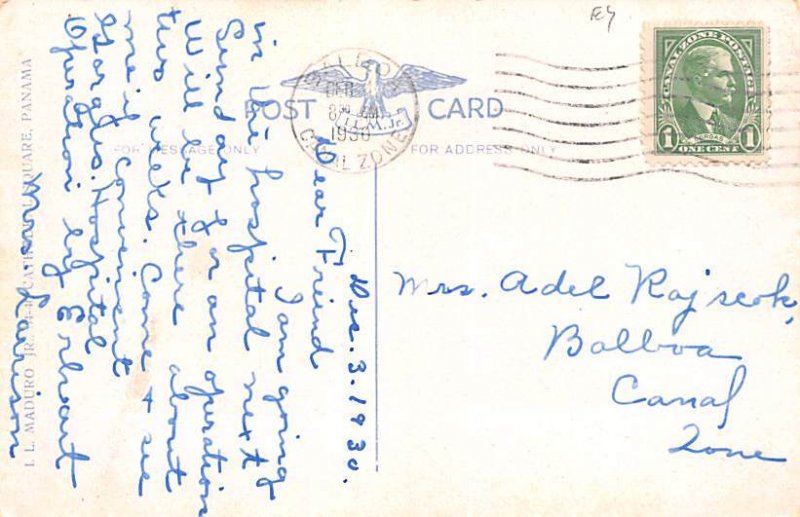 POST CARD
FOR MESSAGE ONLY
FOR ADDRESS ONLY
I.L.M.Jr.
CANAL ZONE
1930
CANAL ZONE POSTAGE
GORGAS
1 ONE CENT 1
Dec. 3. 1930.
Dear Friend
I am going
in the hospital next
Sunday for an operation
Will be there about
two weeks. Come & see
me if convenient
Gorgas. Hospital
Operation by Erhart
Mrs. Larrison
Mrs. Adel Rajscok,
Balboa
Canal
Zone
I. L. MADURO JR. SQUARE, PANAMA